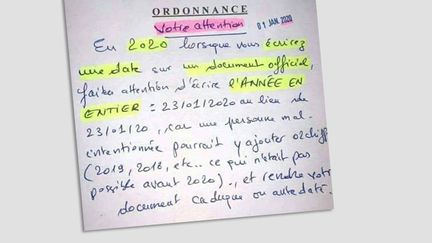 ORDONNANCE
Votre attention
01 JAN 2020
En 2020 lorsque vous écrivez
une date sur un document officiel,
faites attention d'écrire l'ANNÉE EN
ENTIER = 23/01/2020 au lieu de
23/01/20, car une personne mal-
intentionnée pourrait y ajouter 02 chiff
(2019, 2018, etc.. ce qui n'était pas
possible avant 2020)., et rendre votre
document caduque ou antedaté.